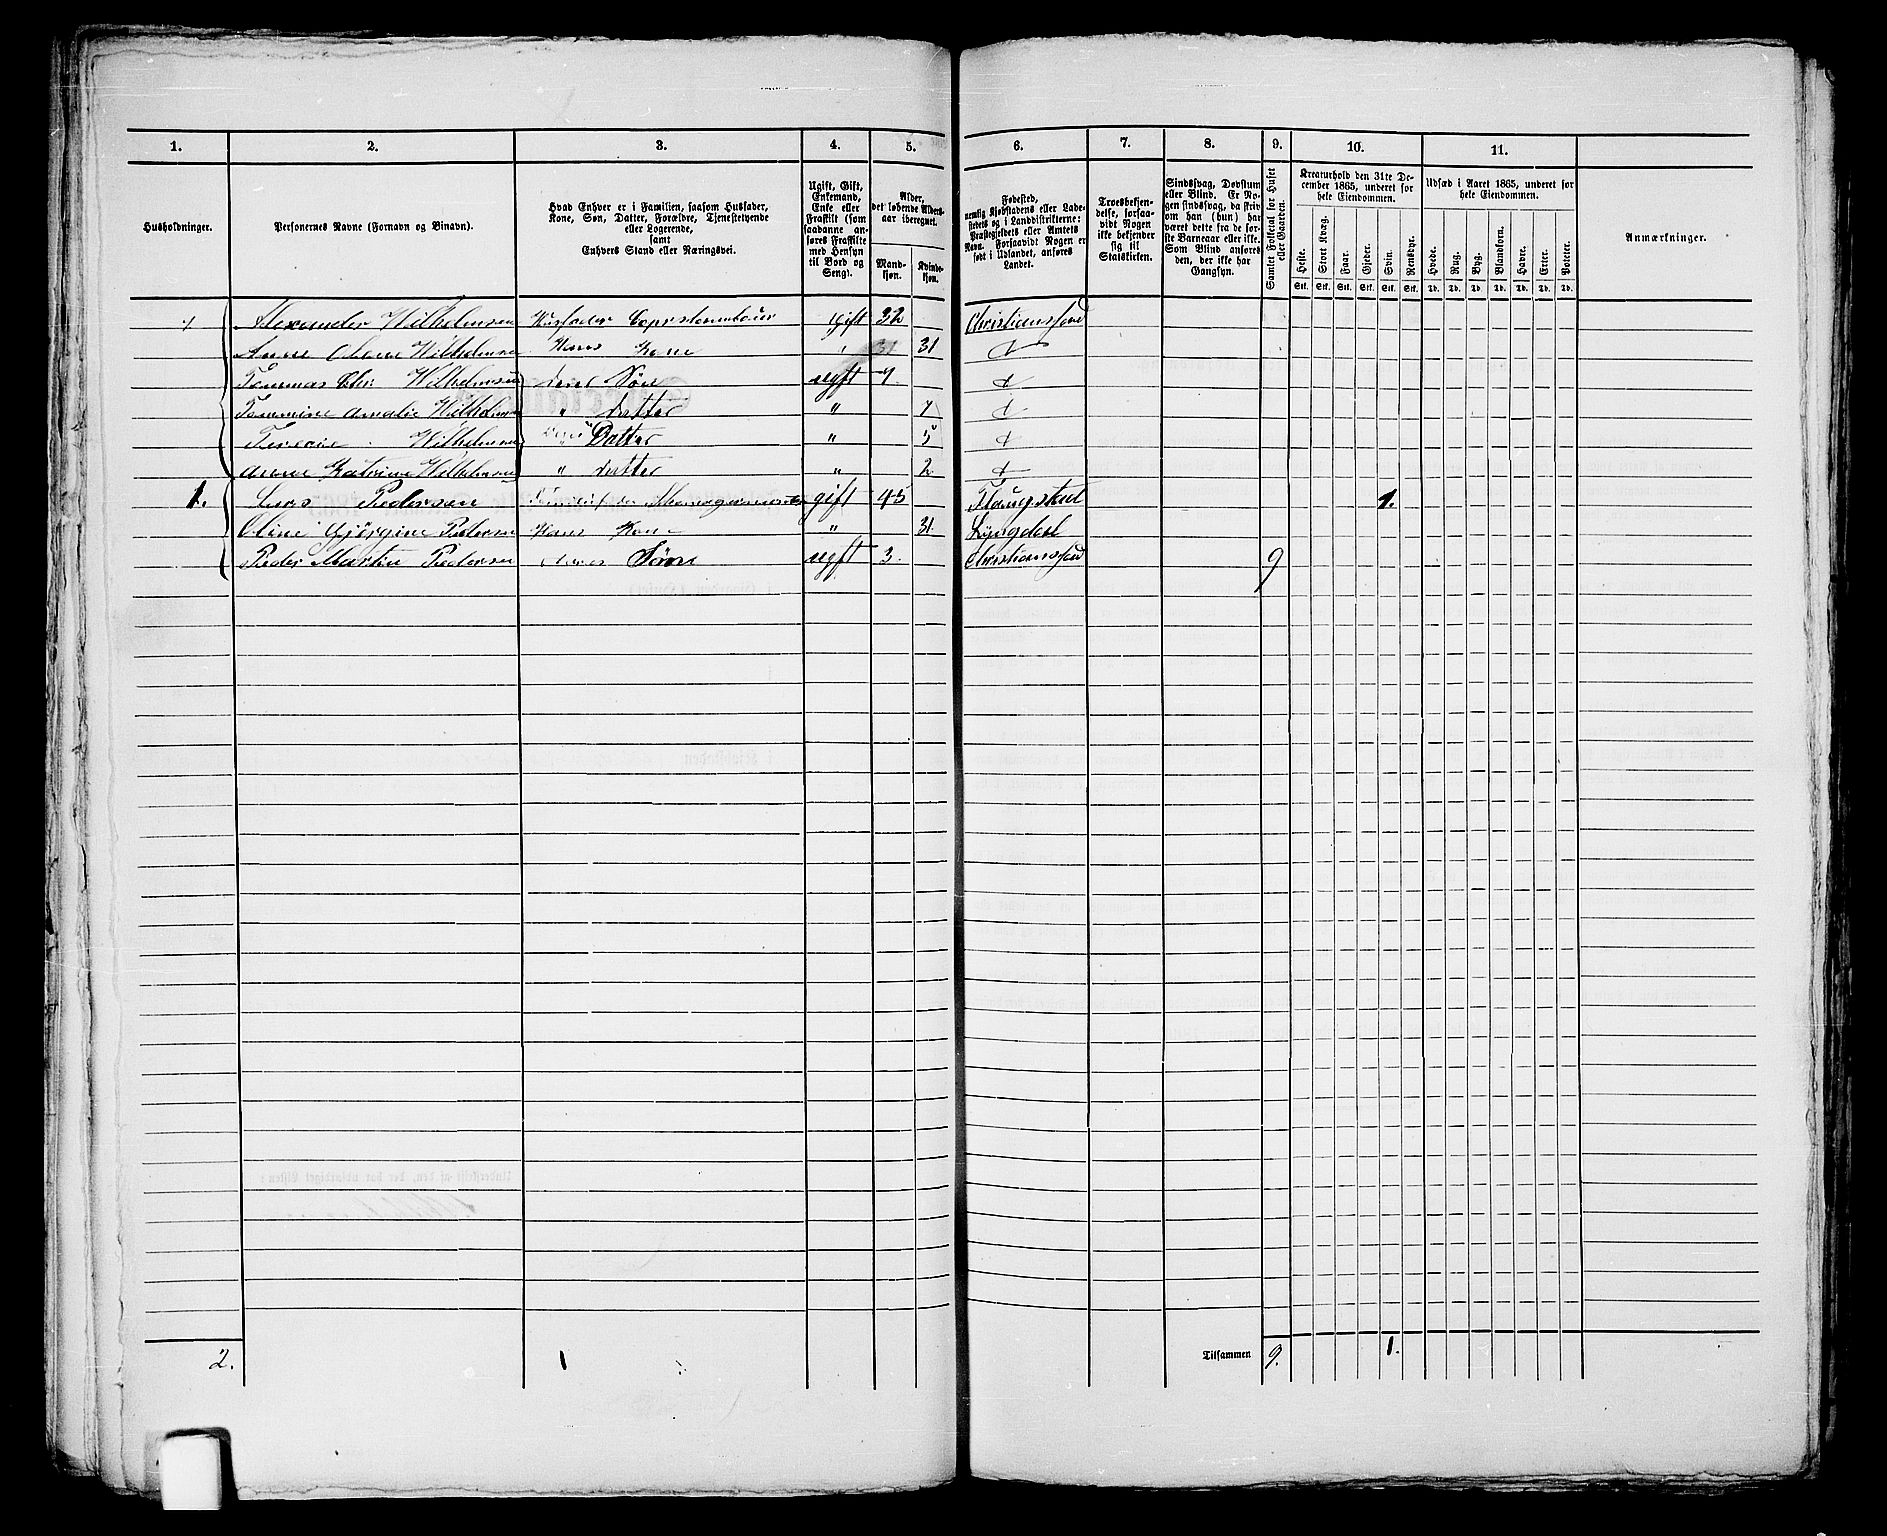 1. 2. 3. 4. 5. 6. 7. 8. 9. 10. 11.
Husholdninger.
Personernes Navne (Fornavn og Binavn).
Hvad Enhver er i Familien, saasom Husfader,
Kone, Søn, Datter, Forældre, Tjenestetyende
eller Logerende,
samt
Enhvers Stand eller Næringsvei.
Ugift, Gift,
Enkemand,
Enke eller
Fraskilt (som
saadanne anføres Fraskilte
med Hensyn
til Bord og
Seng).
Alder,
det løbende Aldersaar iberegnet.
Mandkjøn.
Kvindekjøn.
Fødested,
nemlig Kjøbstadens eller Ladestedets og i Landdistrikterne:
Præstegjeldets eller Amtets
Navn. Forsaavidt Nogen er
født i Udlandet, anføres
Landet.
Troesbekjendelse, forsaavidt Nogen
ikke bekjender
sig til
Statskirken.
Sindssvag, Døvstum
eller Blind. Er Nogen sindssvag, da skriv
om han (hun) har
været dette fra de første Barneaar eller ikke.
Som Blind anføres
den, der ikke har
Gangsyn.
Samlet Folketal for Huset
eller Gaarden.
Kreaturhold den 31te December 1865, underet for
hele Eiendommen.
Heste. Stort Kvæg. Faar. Gjeder. Svin. Rensdyr.
Stk. Stk. Stk. Stk. Stk. Stk.
Udsæd i Aaret 1865, underet for
hele Eiendommen.
Hvede. Rug. Byg. Blandkorn. Havre. Erter. Poteter.
Td. Td. Td. Td. Td. Td. Td.
Anmærkninger.
1 Alexander Wilhelmsen Husfader Gift 32 Christianssand
Anne Wilhelmsen Hans Kone " 31
Wilhelmsen deres Søn ugift 7
Amalie Wilhelmsen " datter " 7
Wilhelmsen Datter " 5
Anne Katrine Wilhelmsen " datter " 2
1. Lars Pedersen gift 45 1.
Oline Gjörgine Pedersen Hans Kone " 31 Lyngdal
Peder Martin Pedersen deres Søn ugift 3 Christianssand 9
2. 1 Tilsammen 9. 1.